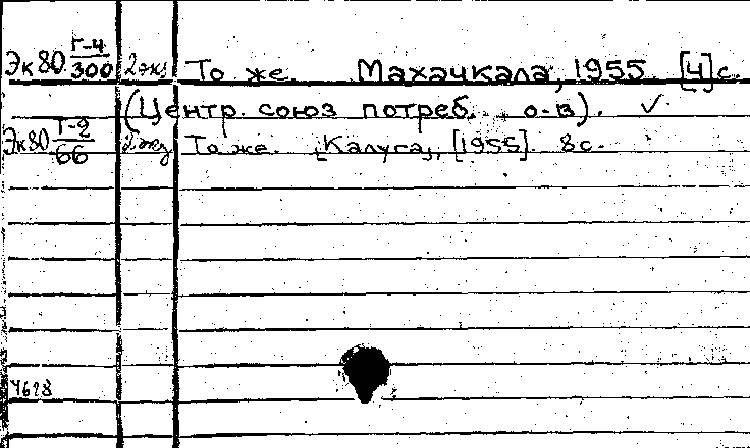 Эк80 Г-4/300 2 экз То же. Махачкала, 1955 [4] с.
(Центр. союз потреб. о-в). ✓
Эк80 Г-2/66 2 экз То же. [Калуга], [1955]. 8 с.
4628